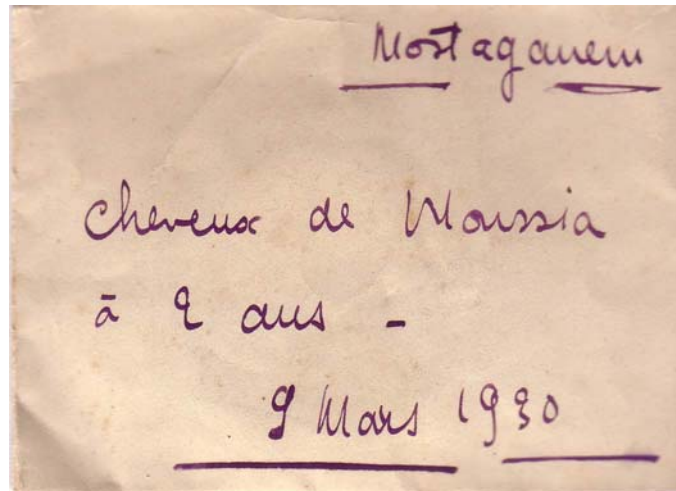 Mostaganem
cheveux de Moussia
à 2 ans -
9 Mars 1930